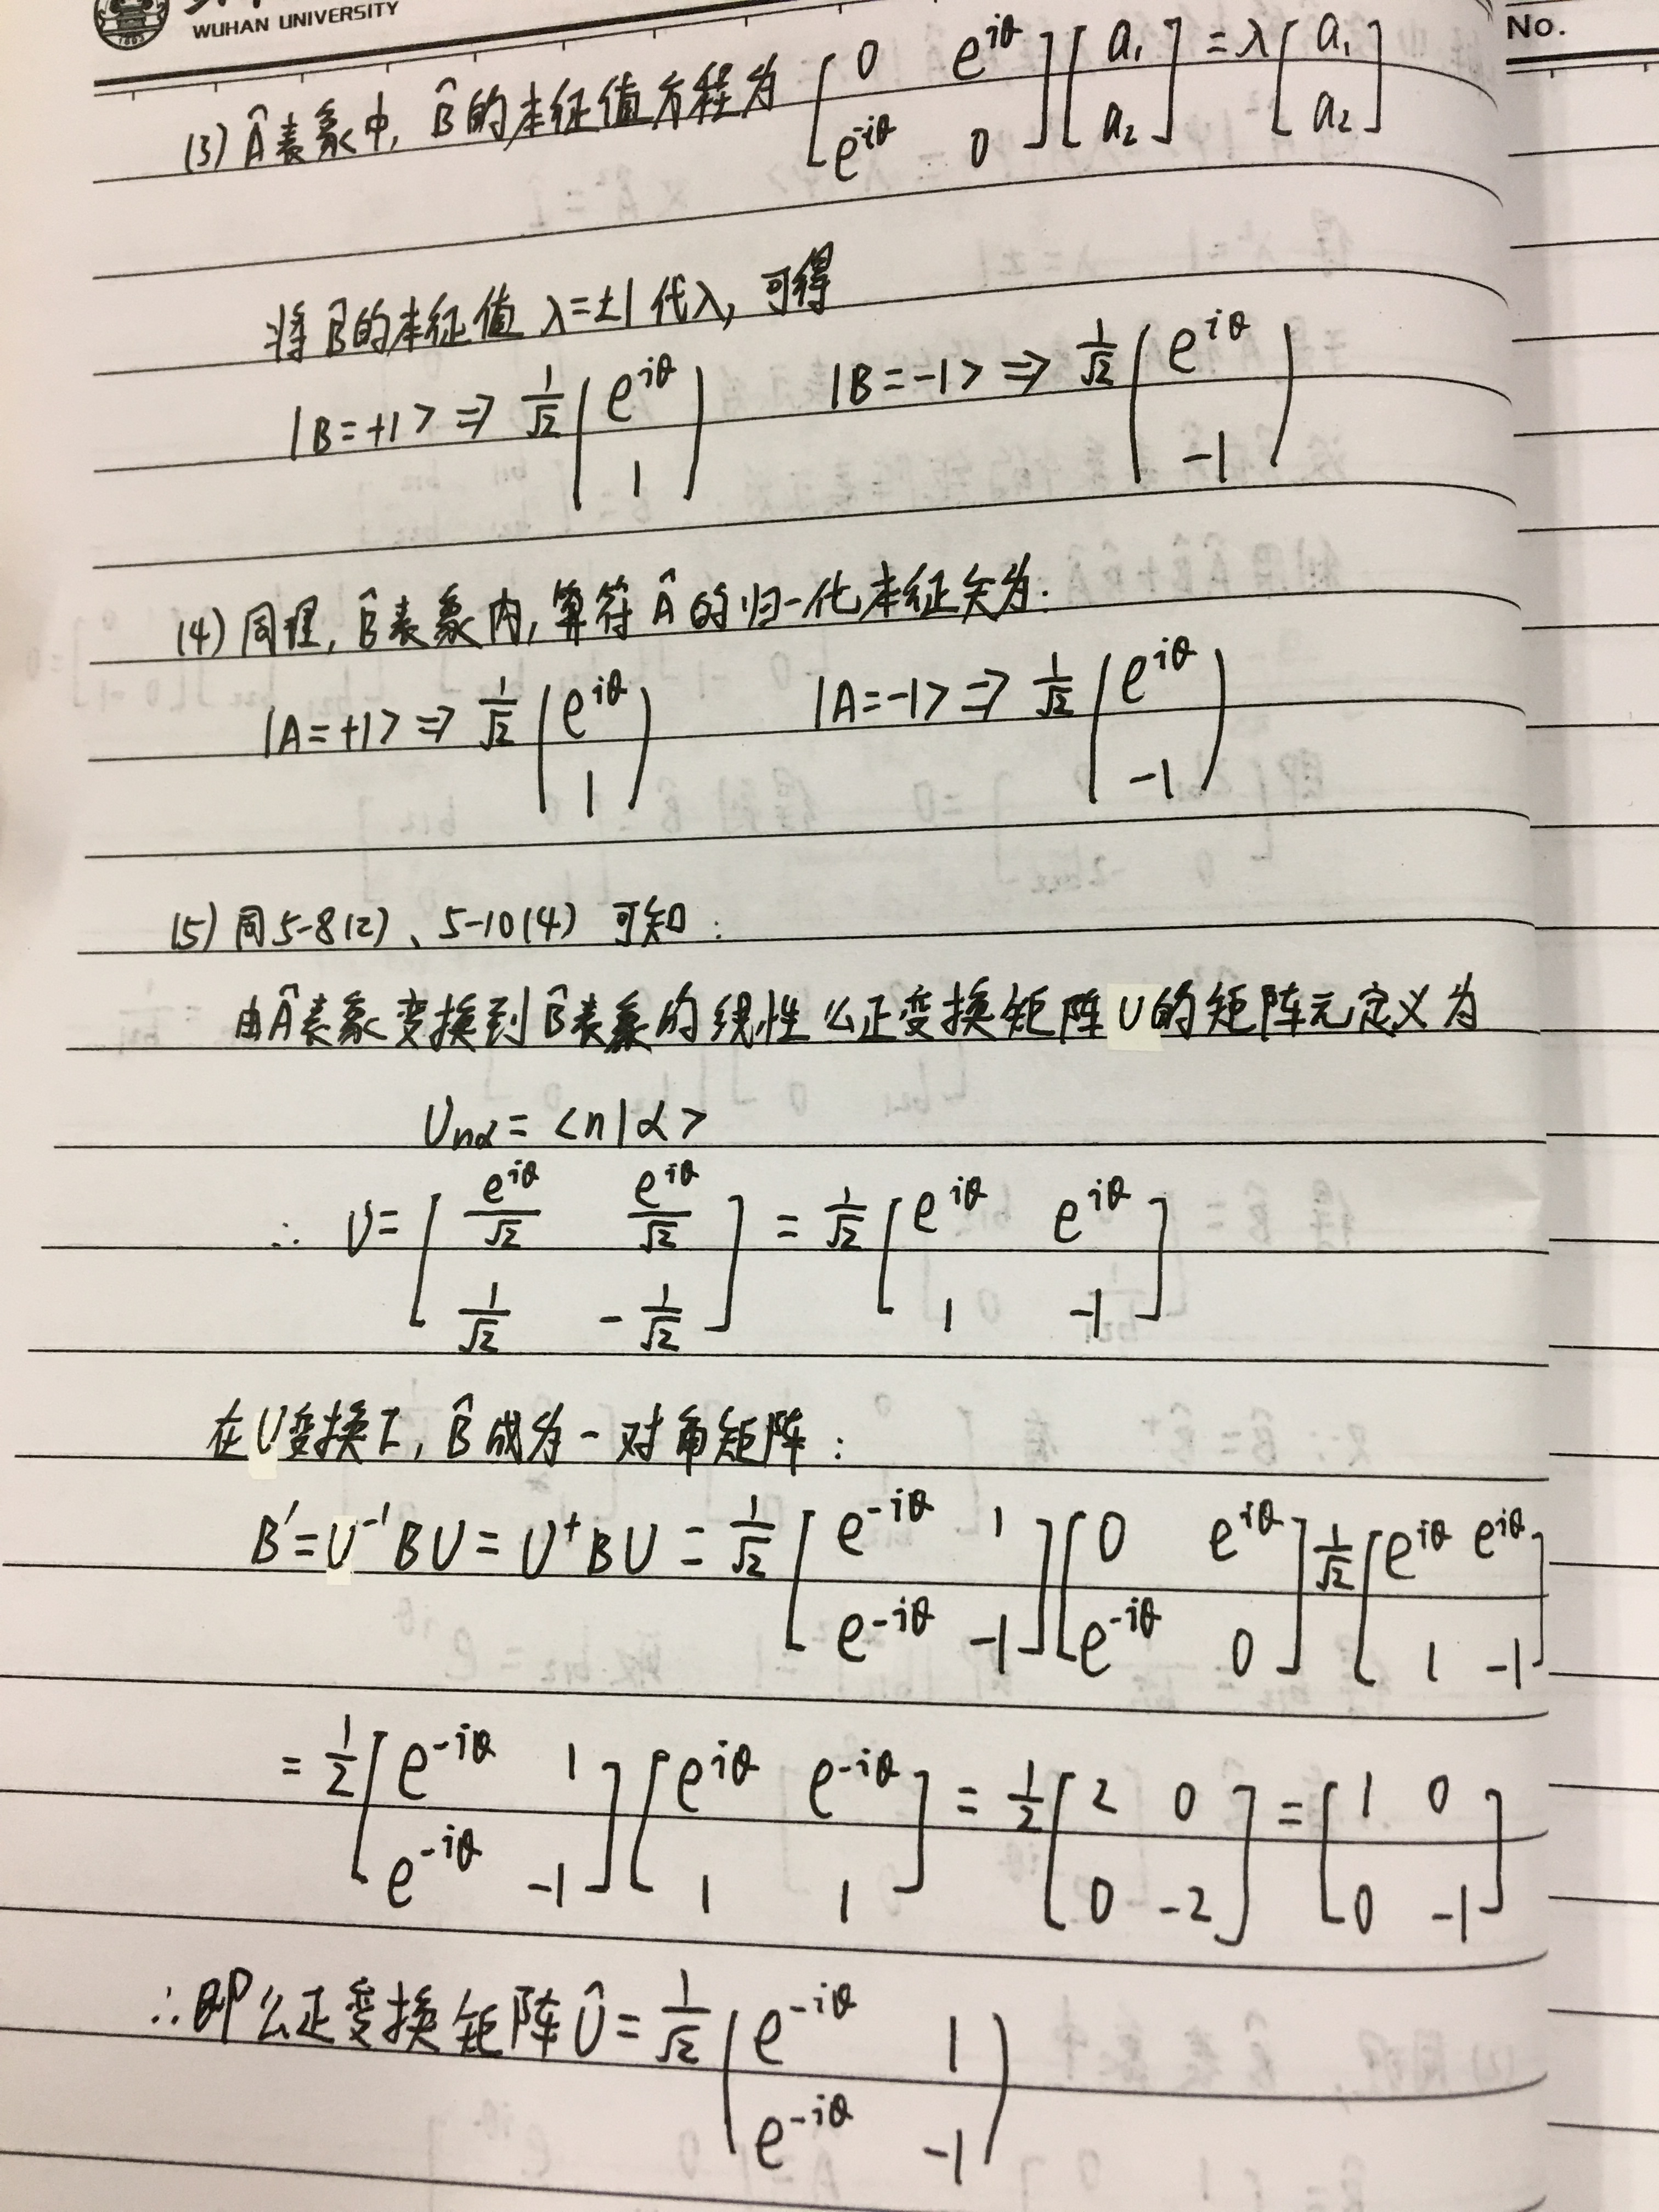 WUHAN UNIVERSITY
No.
(3) Â表象中, B̂的本征值方程为 [0 e^{iθ}; e^{-iθ} 0][a₁; a₂] = λ[a₁; a₂]
将B̂的本征值 λ=±1代入, 可得
|B=+1> ⇒ 1/√2 (e^{iθ}; 1) |B=-1> ⇒ 1/√2 (e^{iθ}; -1)
(4) 同理, B̂表象内, 算符Â的归一化本征矢为:
|A=+1> ⇒ 1/√2 (e^{iθ}; 1) |A=-1> ⇒ 1/√2 (e^{iθ}; -1)
(5) 同5-8(2)、5-10(4) 可知:
由Â表象变换到B̂表象的线性么正变换矩阵U的矩阵元定义为
U_{nα} = <n|α>
∴ U = [e^{iθ}/√2 e^{iθ}/√2; 1/√2 -1/√2] = 1/√2 [e^{iθ} e^{iθ}; 1 -1]
在U变换下, B̂成为一对角矩阵:
B′=U⁻¹BU = U⁺BU = 1/√2 [e^{-iθ} 1; e^{-iθ} -1][0 e^{iθ}; e^{-iθ} 0] 1/√2 [e^{iθ} e^{iθ}; 1 -1]
= 1/2 [e^{-iθ} 1; e^{-iθ} -1][e^{iθ} e^{-iθ}; 1 1] = 1/2 [2 0; 0 -2] = [1 0; 0 -1]
∴即么正变换矩阵Û = 1/√2 (e^{-iθ} 1; e^{-iθ} -1)